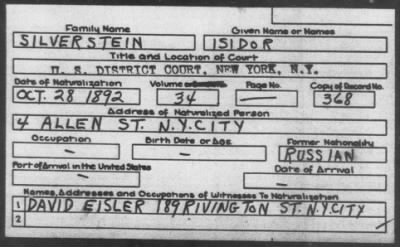 Family Name Given Name or Names
SILVERSTEIN ISIDOR
Title and Location of Court
U. S. DISTRICT COURT, NEW YORK, N.Y.
Date of Naturalization Volume Page No. Copy of Record No.
OCT. 28 1892 34 — 368
Address of Naturalized Person
4 ALLEN ST. N.Y.CITY
Occupation Birth Date or Age Former Nationality
— — RUSSIAN
Port of Arrival in the United States Date of Arrival
— —
Names, Addresses and Occupations of Witnesses To Naturalization
1 DAVID EISLER 189 RIVINGTON ST. N.Y.CITY
2